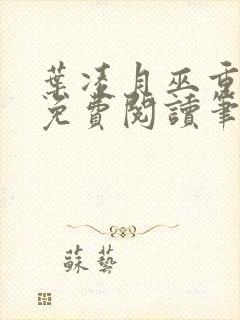 葉凌月巫重
免費閱讀筆
蘇藝